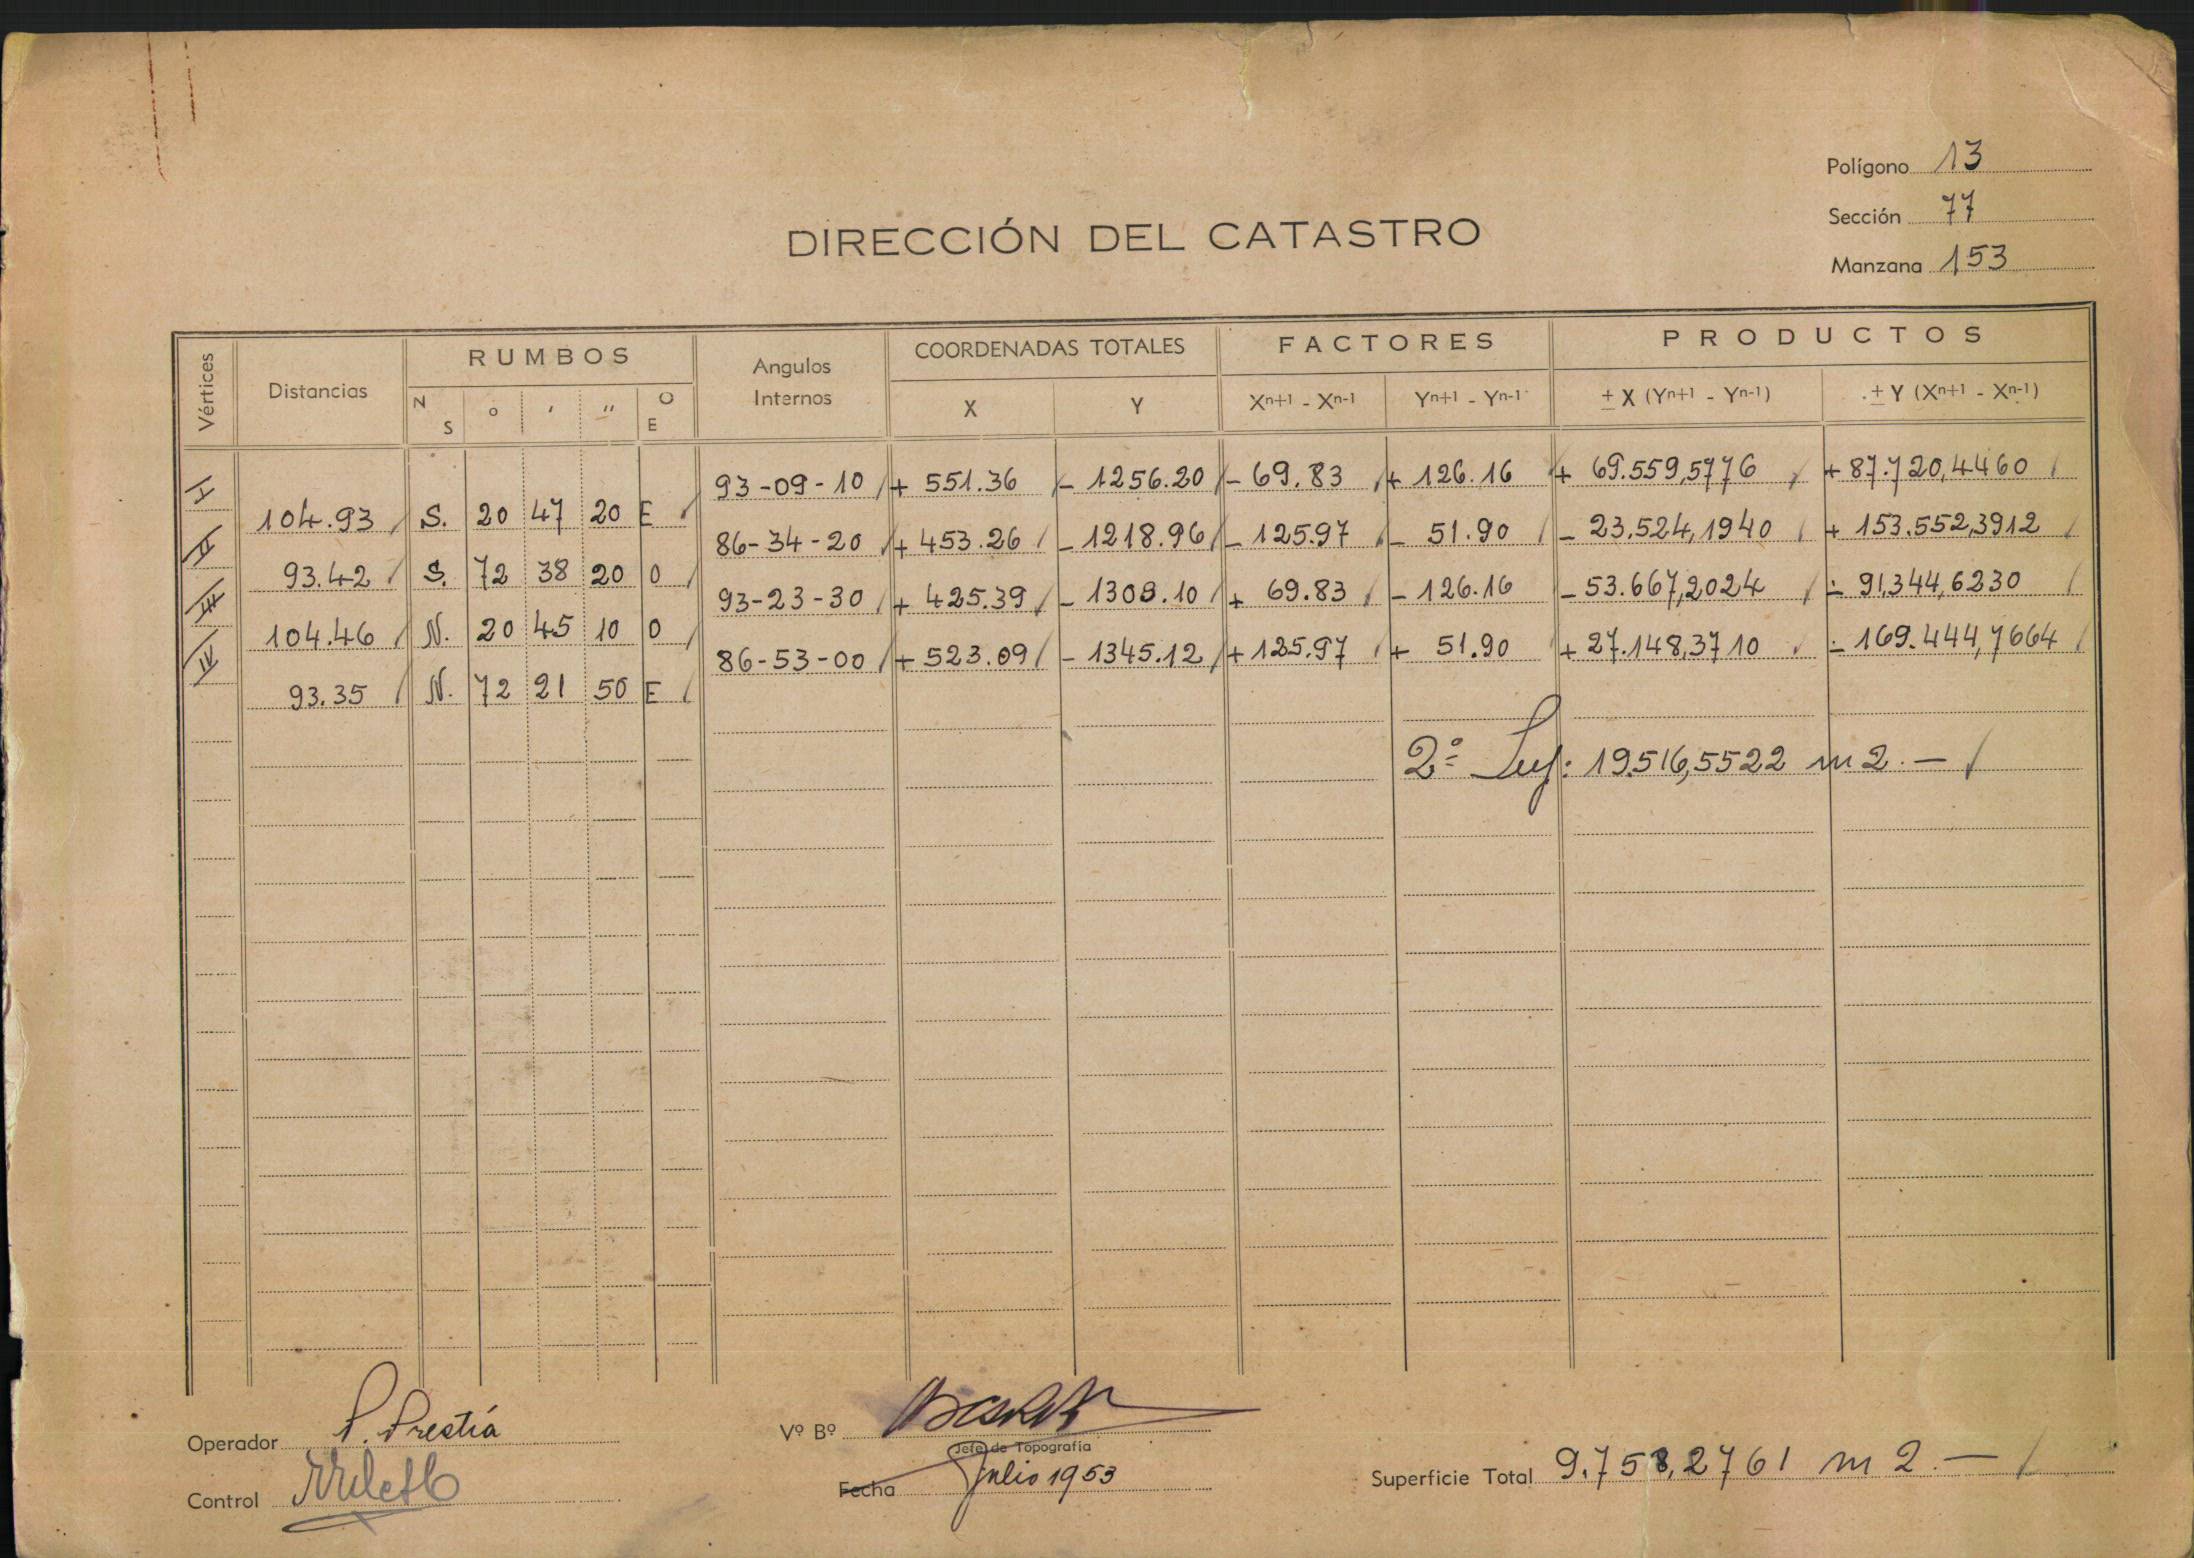 Polígono 13
Sección 77
Manzana 153
DIRECCIÓN DEL CATASTRO
Vértices Distancias RUMBOS Angulos Internos COORDENADAS TOTALES FACTORES PRODUCTOS
N S o ' '' O E X Y Xn+1 - Xn-1 Yn+1 - Yn-1 ± X (Yn+1 - Yn-1) ± Y (Xn+1 - Xn-1)
I 93-09-10 + 551.36 - 1256.20 - 69.83 + 126.16 + 69.559,5776 + 87.720,4460
104.93 S. 20 47 20 E
II 86-34-20 + 453.26 - 1218.96 - 125.97 - 51.90 - 23.524,1940 + 153.552,3912
93.42 S. 72 38 20 O
III 93-23-30 + 425.39 - 1308.10 + 69.83 - 126.16 - 53.667,2024 - 91.344,6230
104.46 N. 20 45 10 O
IV 86-53-00 + 523.09 - 1345.12 + 125.97 + 51.90 + 27.148,3710 - 169.444,7664
93.35 N. 72 21 50 E
2ª Sup: 19.516,5522 m2.—
Operador P. Prestiá
Control
Vº Bº
Jefe de Topografía
Fecha Julio 1953
Superficie Total 9.758,2761 m2.—